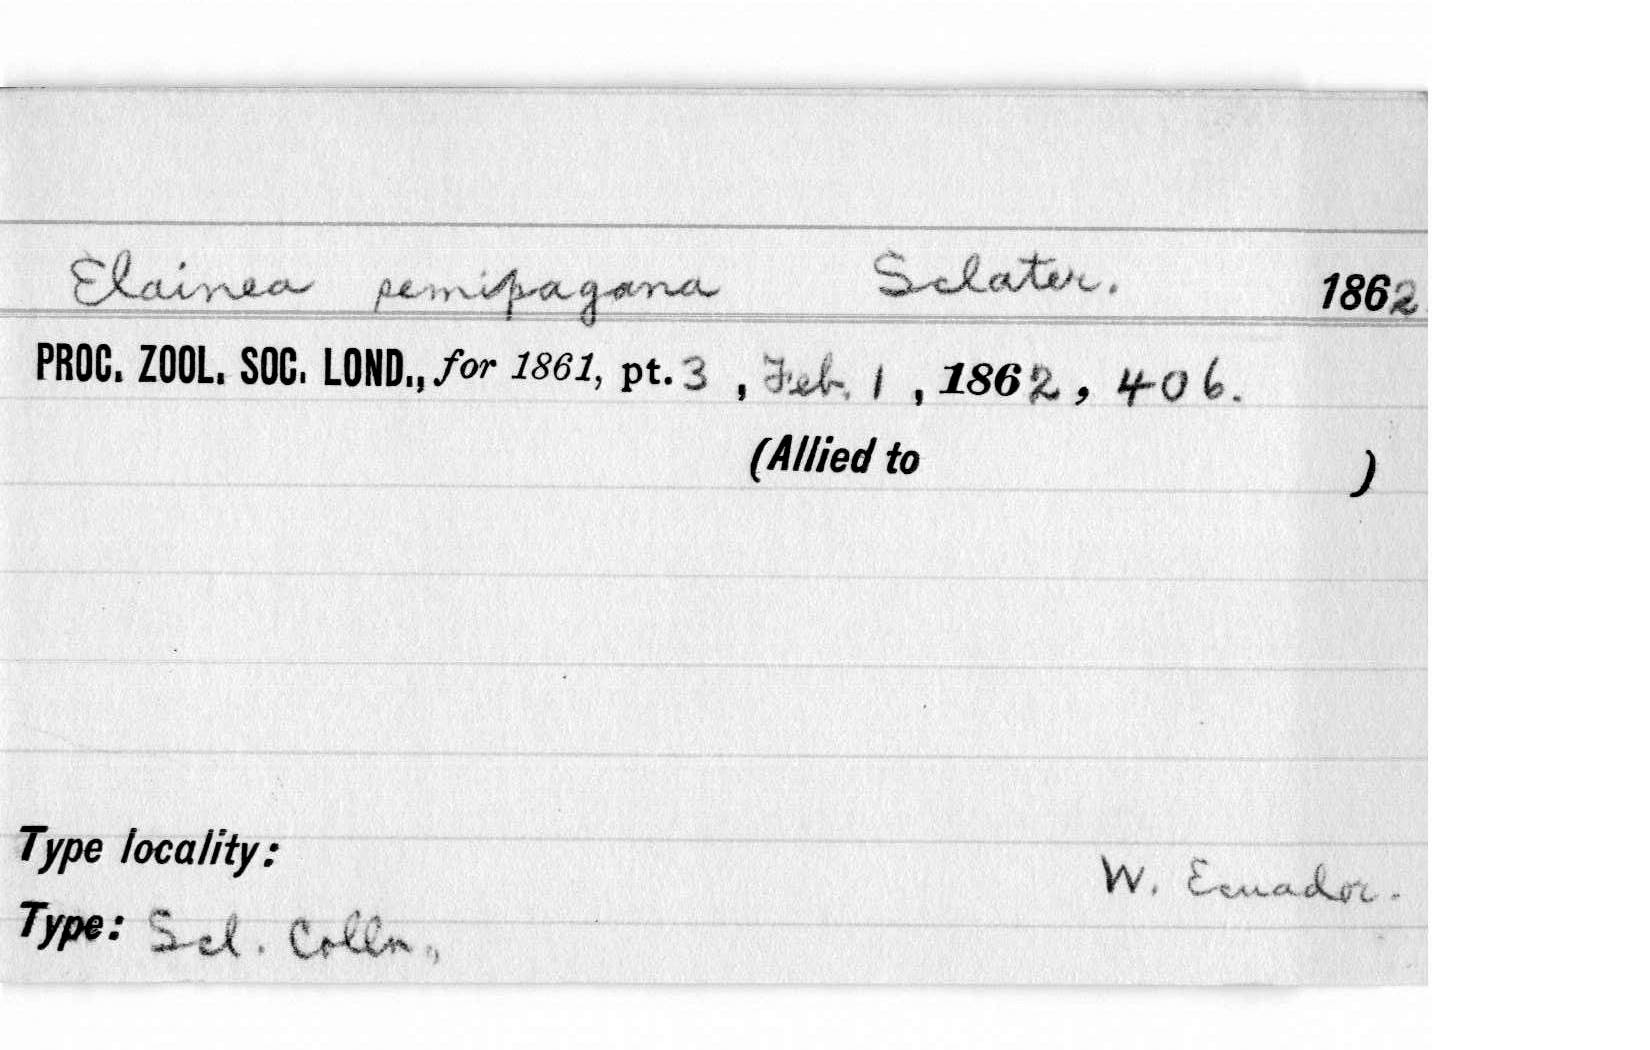 Elainea semipagana Sclater. 1862
PROC. ZOOL. SOC. LOND., for 1861, pt. 3, Feb. 1, 1862, 406.
(Allied to )
Type locality:
W. Ecuador.
Type: Scl. Colln.